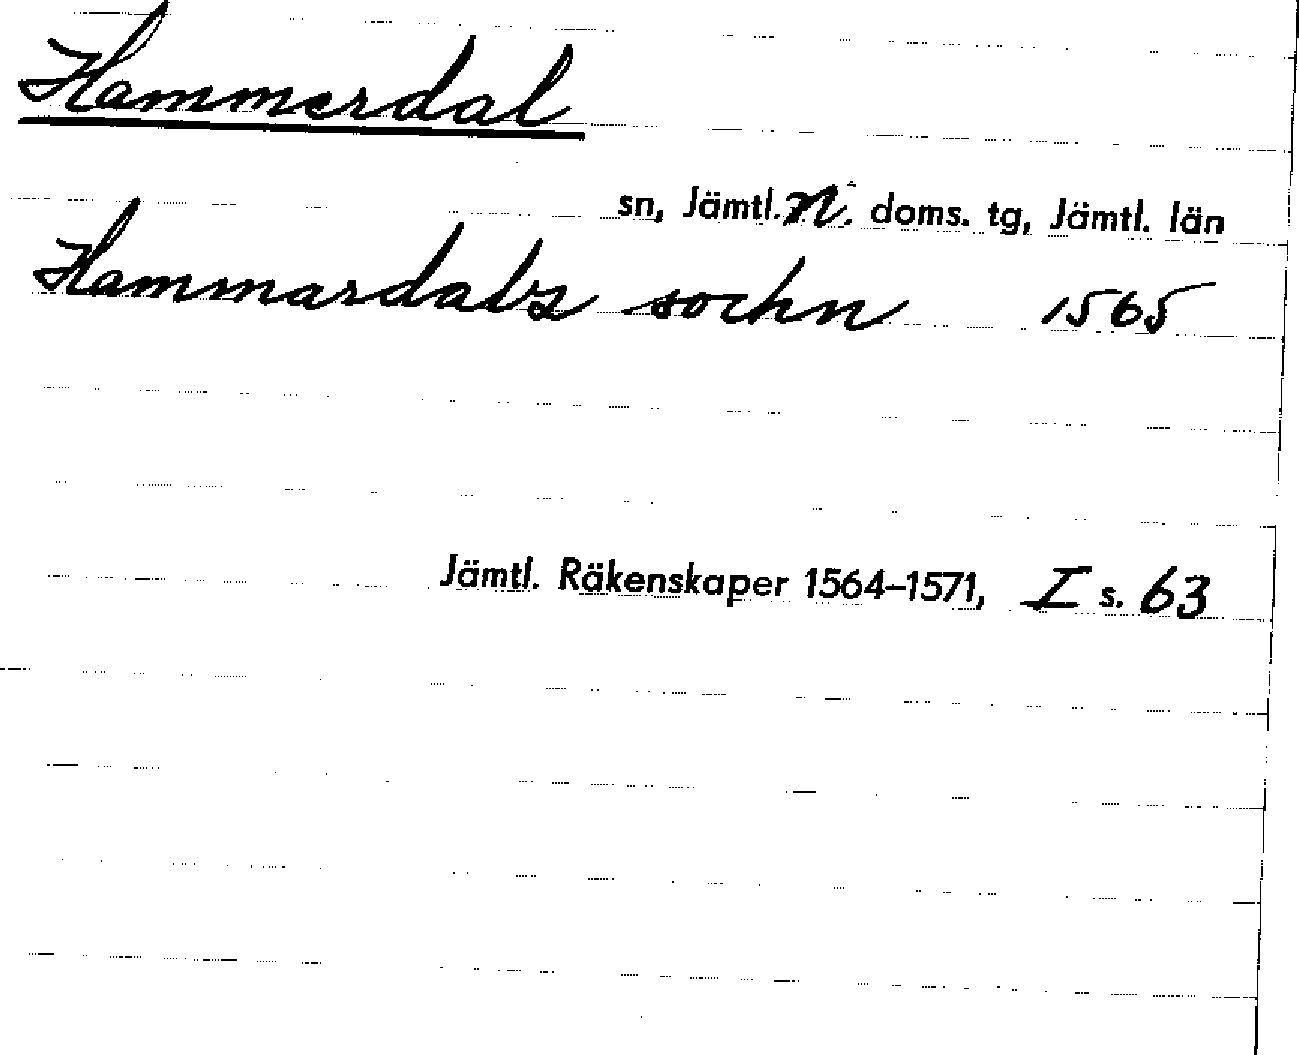 Hammerdal
sn, Jämtl. n. doms. tg, Jämtl. län
Hammardals sochn 1565
Jämtl. Räkenskaper 1564–1571, I s. 63